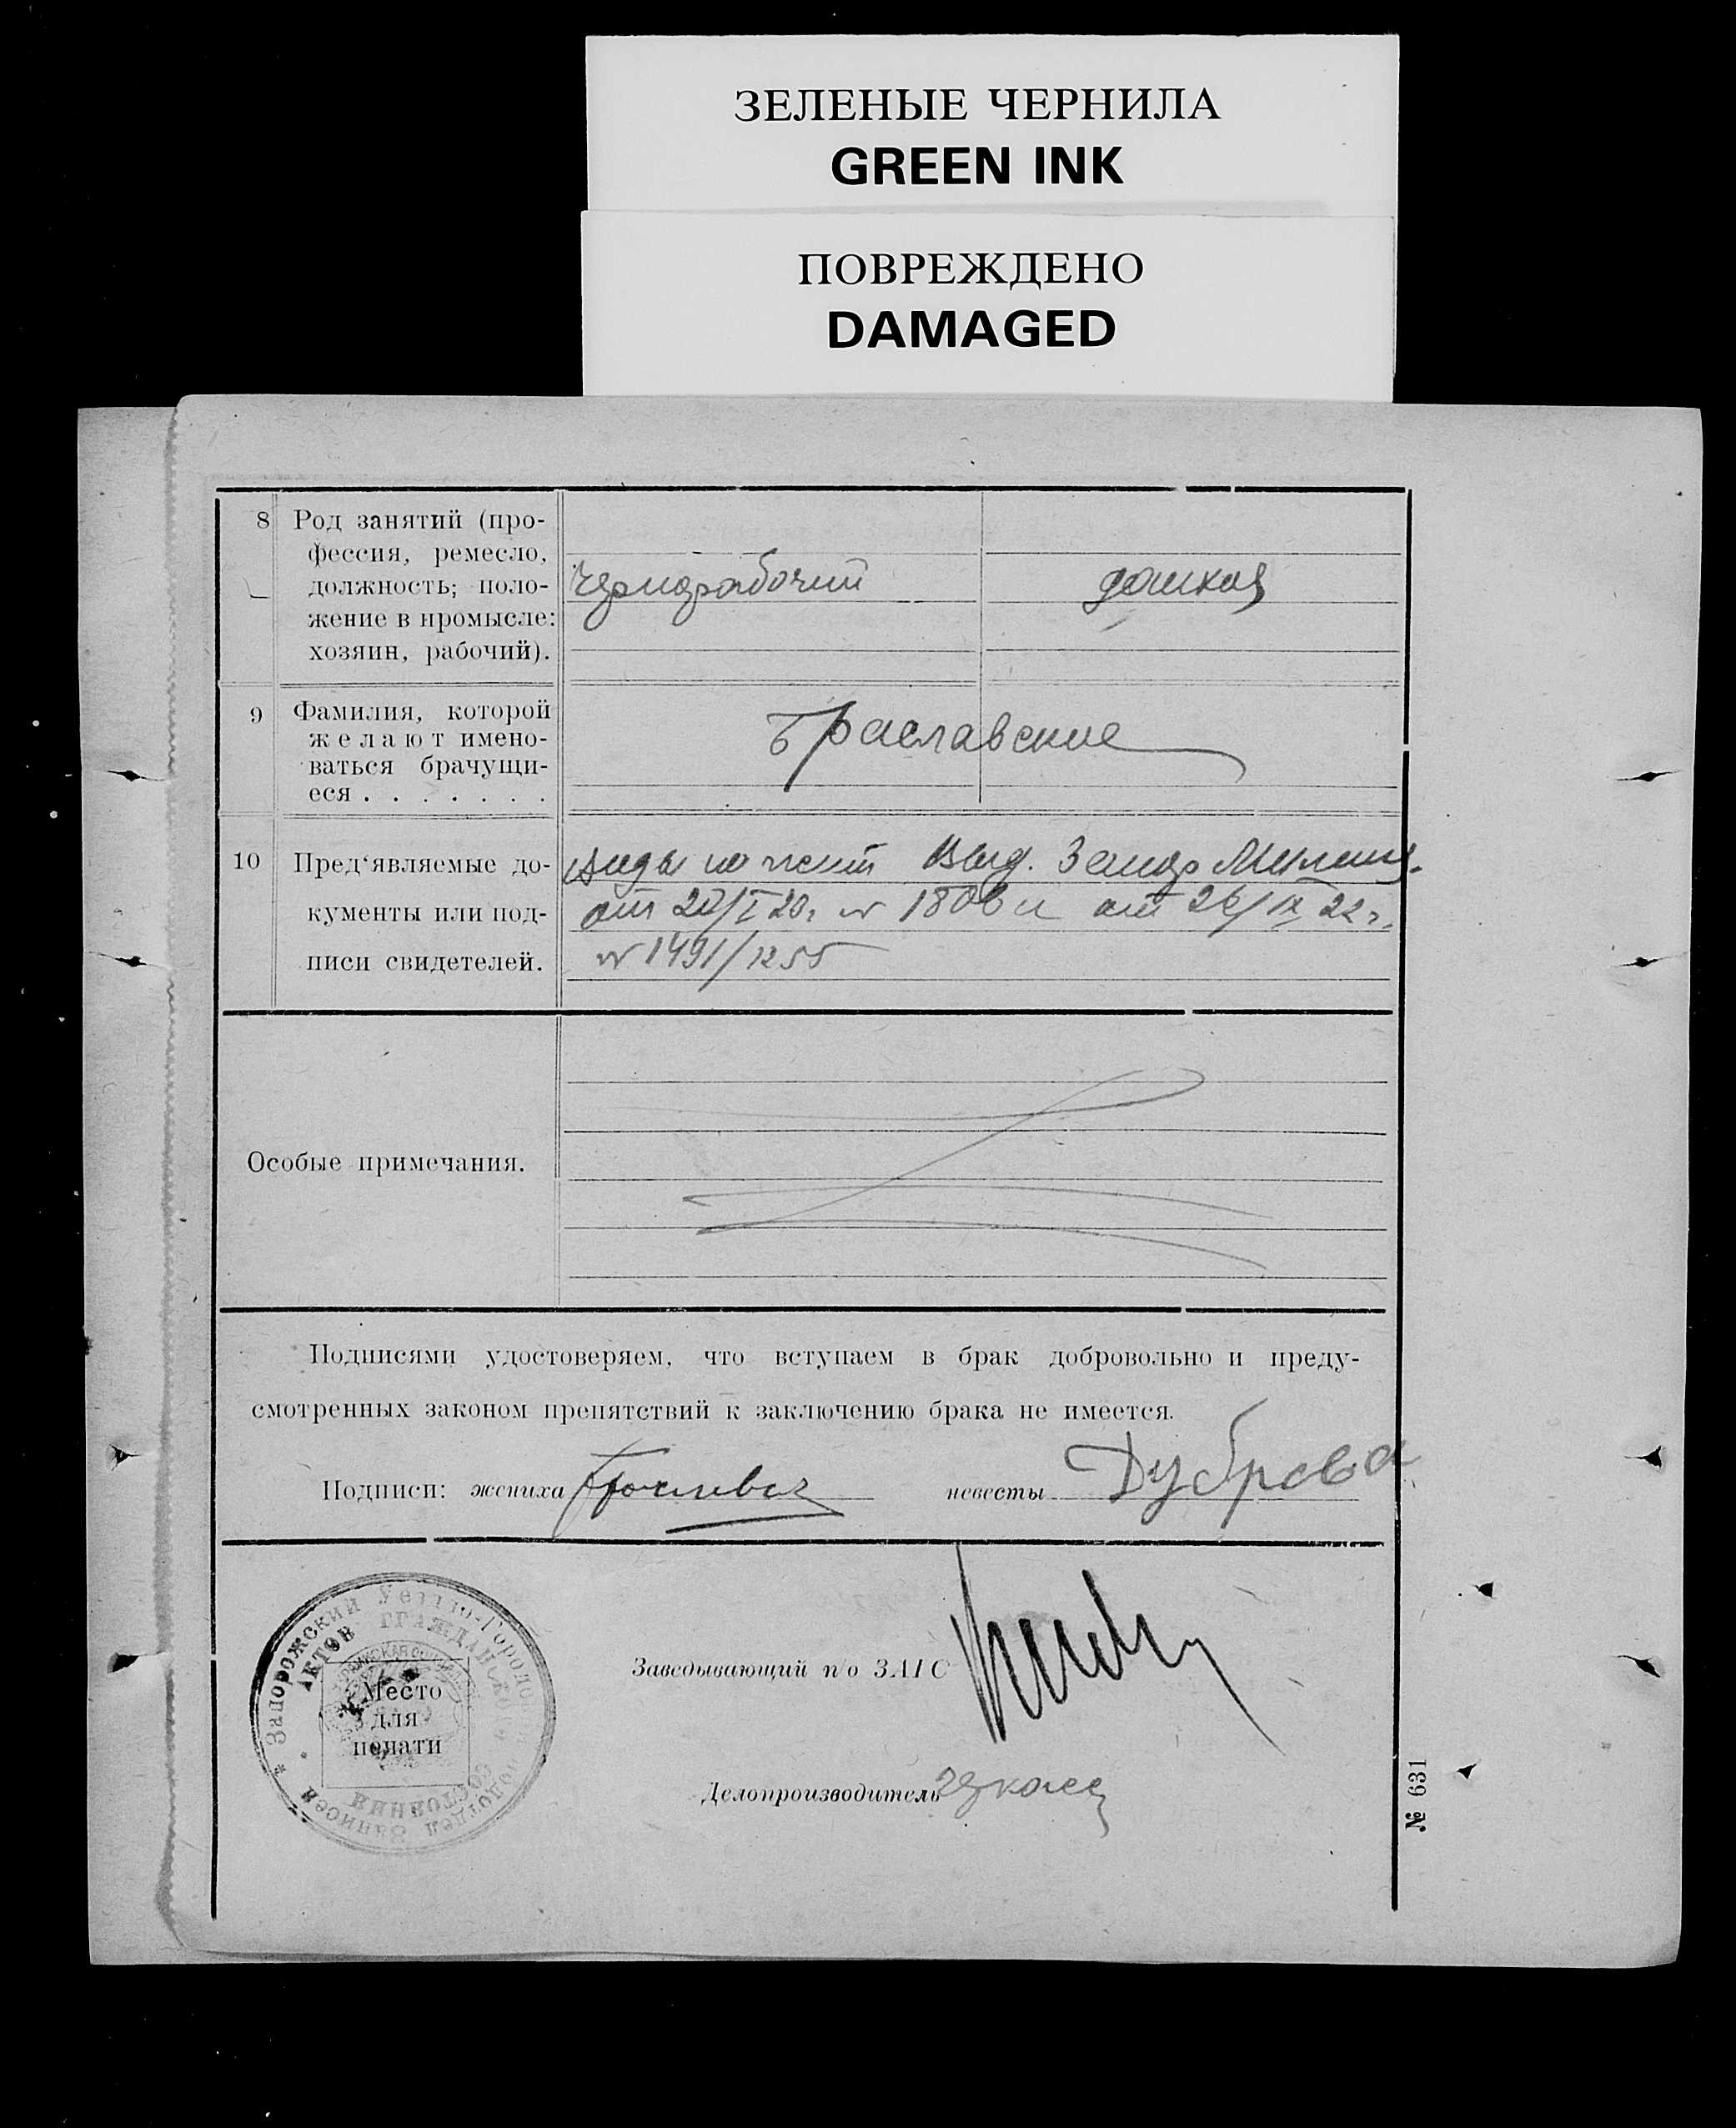 ЗЕЛЕНЫЕ ЧЕРНИЛА
GREEN INK
ПОВРЕЖДЕНО
DAMAGED
8 Род занятий (про-
фессия, ремесло,
должность; поло-
жение в промысле:
хозяин, рабочий).
Чернорабочий
домхоз
9 Фамилия, которой
желают имено-
ваться брачущи-
еся . . . . . . .
Браславские
10 Пред‘являемые до-
кументы или под-
писи свидетелей.
Виды на жит Выд.
от 20/I 20г № 1806 и от 26/IX 22 г.
№ 1491/1255
Особые примечания.
Подписями удостоверяем, что вступаем в брак добровольно и преду-
смотренных законом препятствий к заключению брака не имеется.
Подписи: жениха
невесты Дуброва
Заведывающий п/о ЗАГС
Делопроизводитель
* Запорожский Уездно-Городской подотдел Записей
АКТОВ ГРАЖДАНСКОГО СОСТОЯНИЯ
Место
для
печати
№ 631